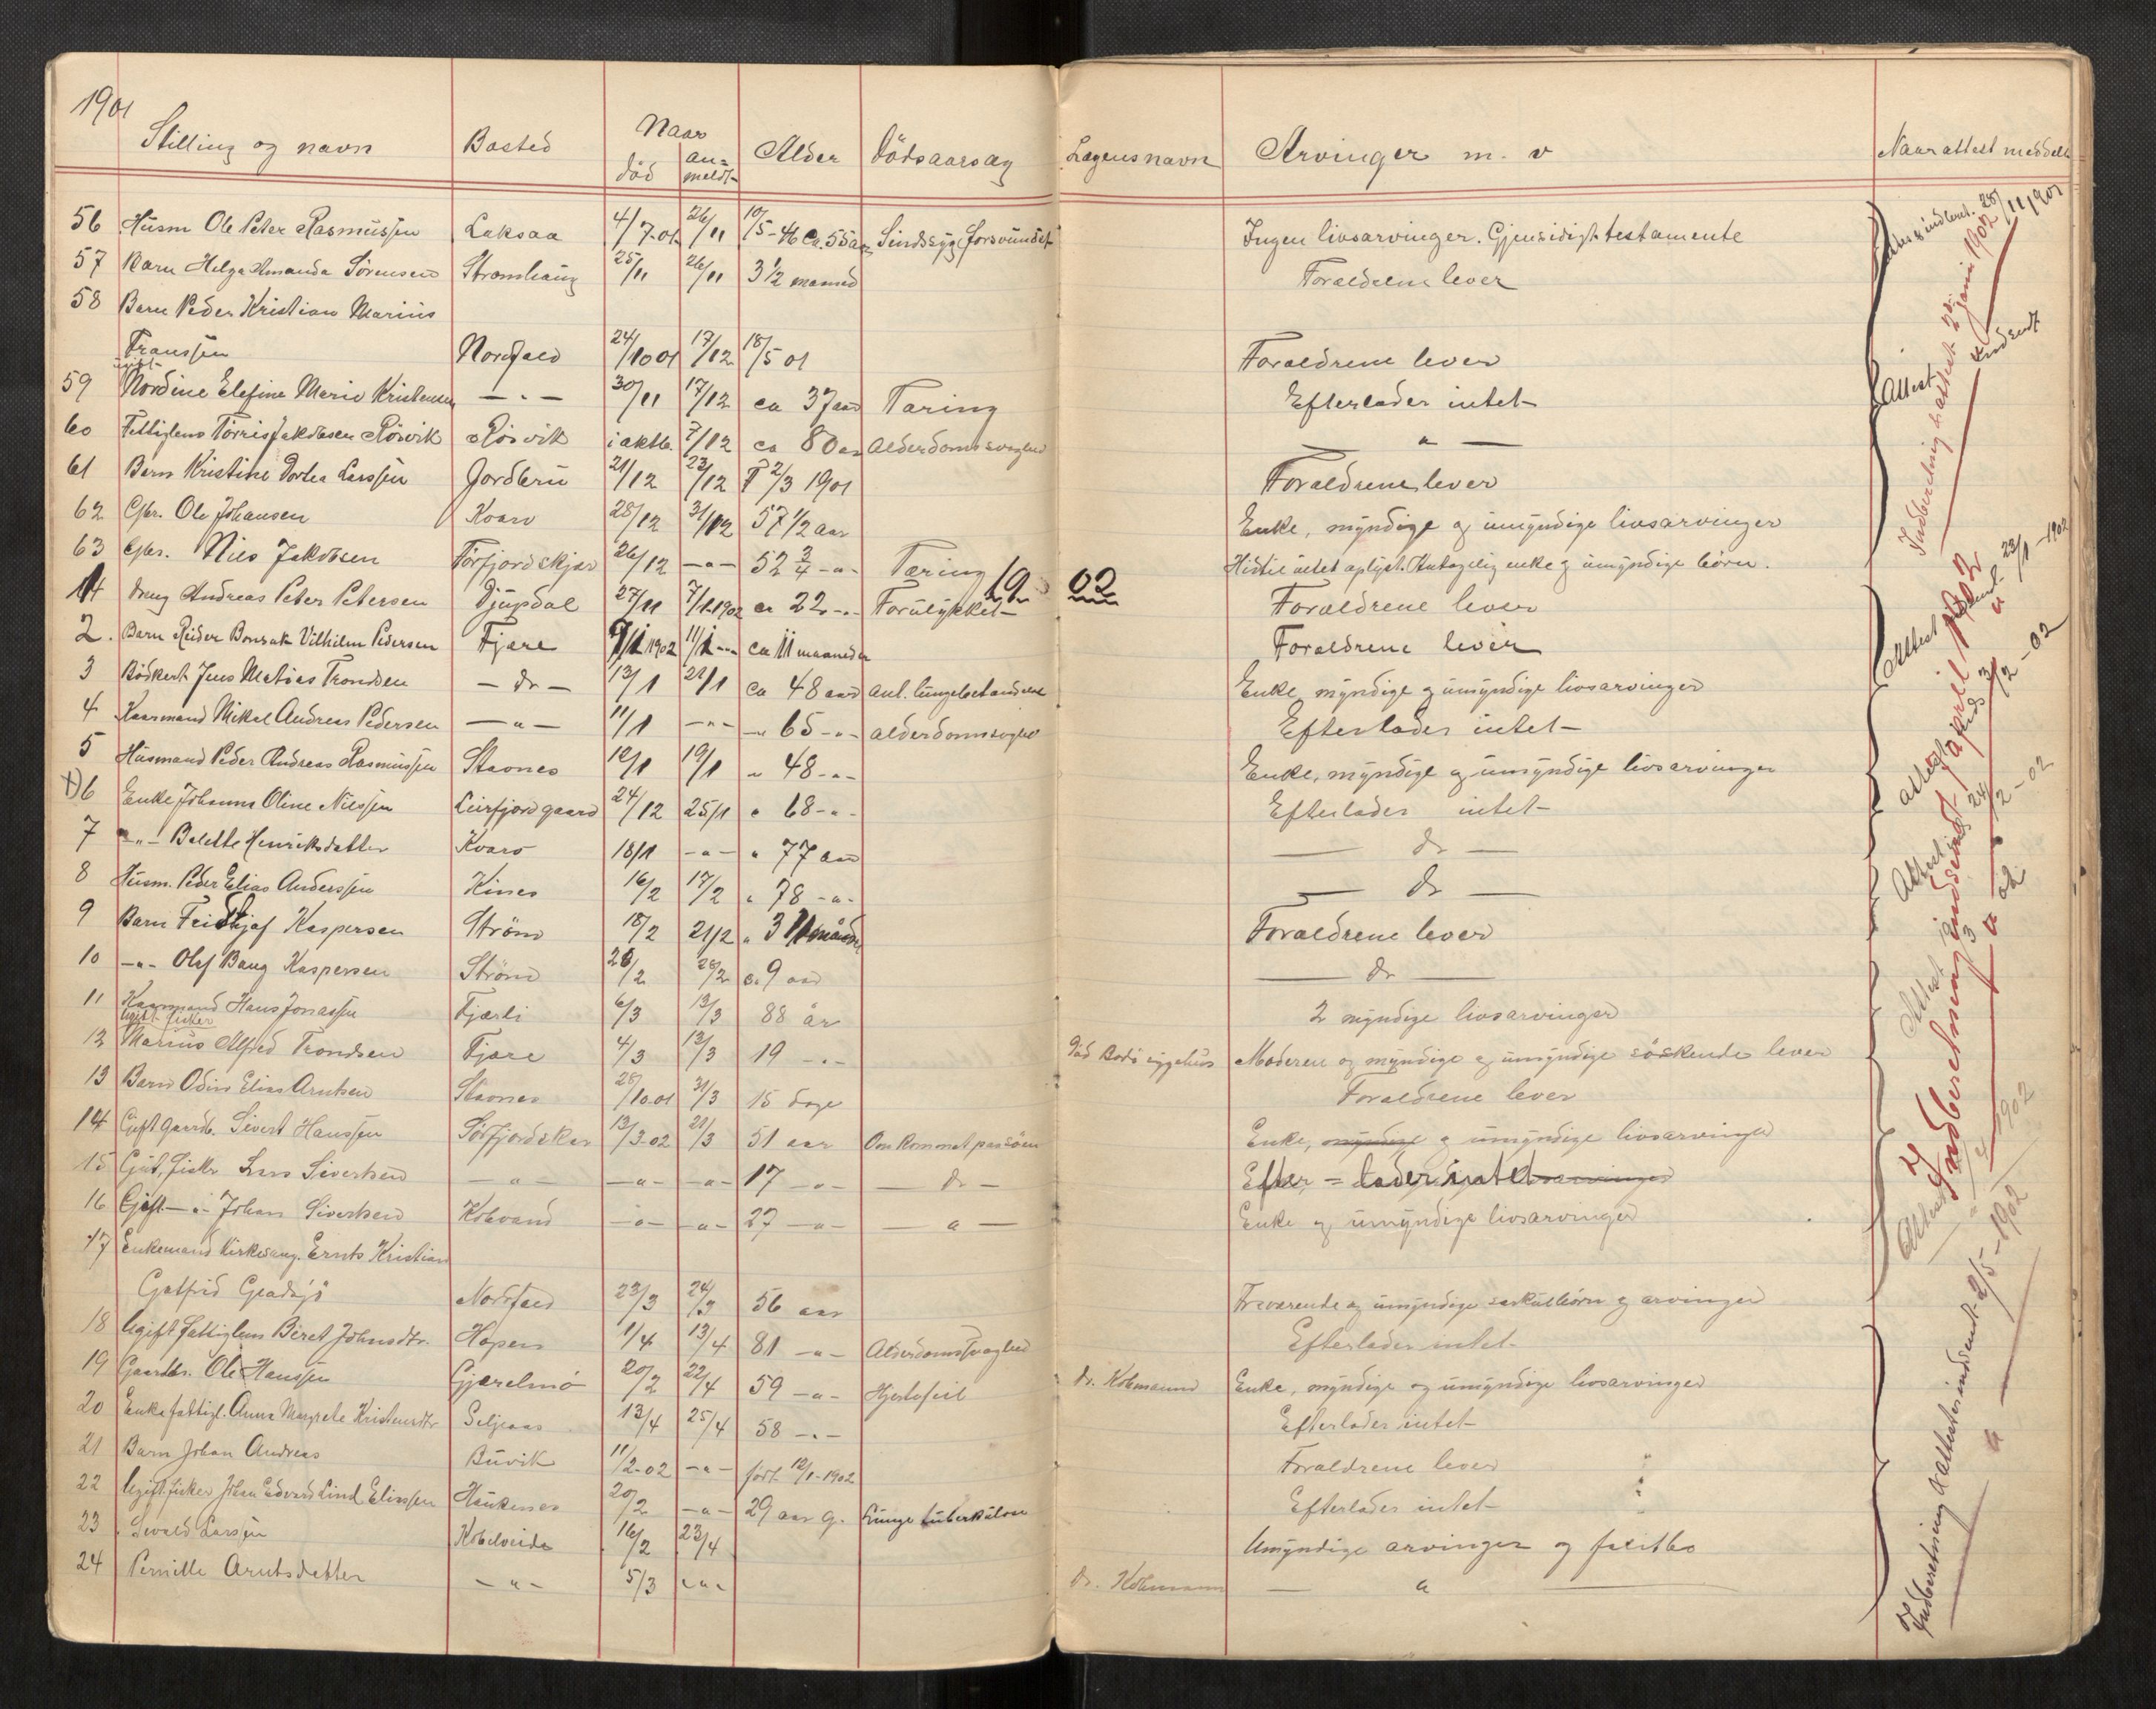 1901
Stilling og navn Bosted Naar död anmeldt Alder Dödsaarsag Lægens navn Arvinger m. v Naar attest meddelt
56 Husm Ole Peter Rasmussen Laksaa 4/7-01 26/11 10/5-46 Ca. 55 aar Sindssyg forsvundet Ingen livsarvinger. Gjensidigt testamente
57 Barn Helga Amanda Sörensen Stromhaug 25/11 26/11 3 1/2 maaned Foraeldrene lever
58 Barn Peder Kristian Marius
Franssen Nordfald 24/10 01 17/12 18/5 01 Foraeldrene lever
ugift
59 Nordine Elefine Marie Kristensen — " — 30/11 17/12 ca 37 aar Tæring Efterlader intet
60 Fattiglem Törris Jakobsen Rösvik Rösvik i aktb. 7/12 ca 80 aar Alderdomssvaghed — " —
61 Barn Kristine Dortea Larssen Jordbru 21/12 23/12 2/3 1901 Foraeldrene lever
62 Gbr. Ole Johansen Kvarv 28/12 31/12 57 1/2 aar Enke, myndige og umyndige livsarvinger
63 Gbr. Nils Jakobsen Törfjordskjar 26/12 — " — 52 3/4 - " - Tæring Hidtil intet oplyst. Antagelig enke og umyndige börn.
1902
1 Dreng Andreas Peter Petersen Djupdal 27/11 7/1 1902 ca 22 - " - Forulykket Foraeldrene lever
2. Barn Reidar Bonsak Vilhelm Pedersen Fjære 1/1 1902 11/1 - " - ca 11 maaneder Foraeldrene lever
3 Bödkert Jens Matias Trondsen — dr — 13/1 22/1 ca 48 aar Ant. lungebetændelse Enke, myndige og umyndige livsarvinger
4 Kaarmand Mikal Andreas Pedersen — " — 11/1 — " — — " 65 - " - Alderdomssvaghed Efterlader intet
5 Husmand Peder Andreas Rasmussen Stavnes 12/1 19/1 " 48 - " - Enke, myndige og umyndige livsarvinger
6 Enke Johanna Oline Nilssen Leirfjordgaard 24/12 25/1 " 68 - " - Efterlader intet
7 — " — Balette Henriksdatter Kvarv 18/1 - " - " 77 aar — dr —
8 Husm. Peder Elias Anderssen Kines 16/2 17/2 " 78 - " - — dr —
9 Barn Fridtjof Kaspersen Ström 18/2 21/2 " 3 måneder Foraeldrene lever
10 — " — Olaf Bang Kaspersen Ström 26/2 28/2 c. 9 aar — dr —
11 Kaarmand Hans Jonassen Fjærli 6/3 13/3 88 år 2 myndige livsarvinger
ugift fisker
12 Marius Alfred Trondsen Fjære 4/3 13/3 19 - " - Död Bodö sygehus Moderen og myndige og umyndige söskende lever
13 Barn Odin Elias Arntsen Stavnes 28/10.01 31/3 15 dage Foraeldrene lever
14 Gift gaardb. Sivert Hanssen Sörfjordskar 13/3-02 21/3 51 aar Omkommet paa söen Enke, myndige og umyndige livsarvinger
15 Gut, fisker Lars Sivertsen — " — — " — - " - 17 - " - — dr — Efter = lader intet
16 Gift — " — Johan Sivertsen Kobvand - " - - " - 27 - " - — " — Enke og umyndige livsarvinger
17 Enkemand Kirkesang. Ernts Kristian
Gotfrid Gradsjö Nordfald 23/3 24/3 56 aar Fraværende og umyndige særkulbörn og arvinger
18 Ugift fattiglem Beret Johnsdtr. Hopen 1/4 13/4 81 - " - Alderdomssvaghed Efterlader intet
19 Gaardbr. Ole Hanssen Gjærelmö 20/2 22/4 59 - " - Hjertefeil Dr. Kobmann Enke, myndige og umyndige livsarvinger
20 Enke fattigl. Anna Margrete Kristensdtr Seljeaas 13/4 25/4 58 - " - Efterlader intet
21 Barn Johan Andreas Buvik 11/2-02 - " - födt 12/1-1902 Foraeldrene lever "
22 Ugift fisker Johan Edvard Lind Eliassen Haukenes 20/2 - " - 29 aar g. Lunge tuberkulose Efterlader intet "
23 Sivald Larssen Kobelveide 16/2 23/4 Umyndige arvinger og fallitbo
24 Pernille Arntsdatter - " - 5/3 - " - Dr. Kobmann — " —
Attest indsendt 28/11 1901
Indberetning & attest 2den januar 1902
Attest indsendt
Attest indsendt 23/1 -1902
Attest 3/2 -02
Attest 24/2 -02
Attest
Indberetning indsendt april 1902
Attest 1902
Indberetning & attester indsendt 2/5 -1902